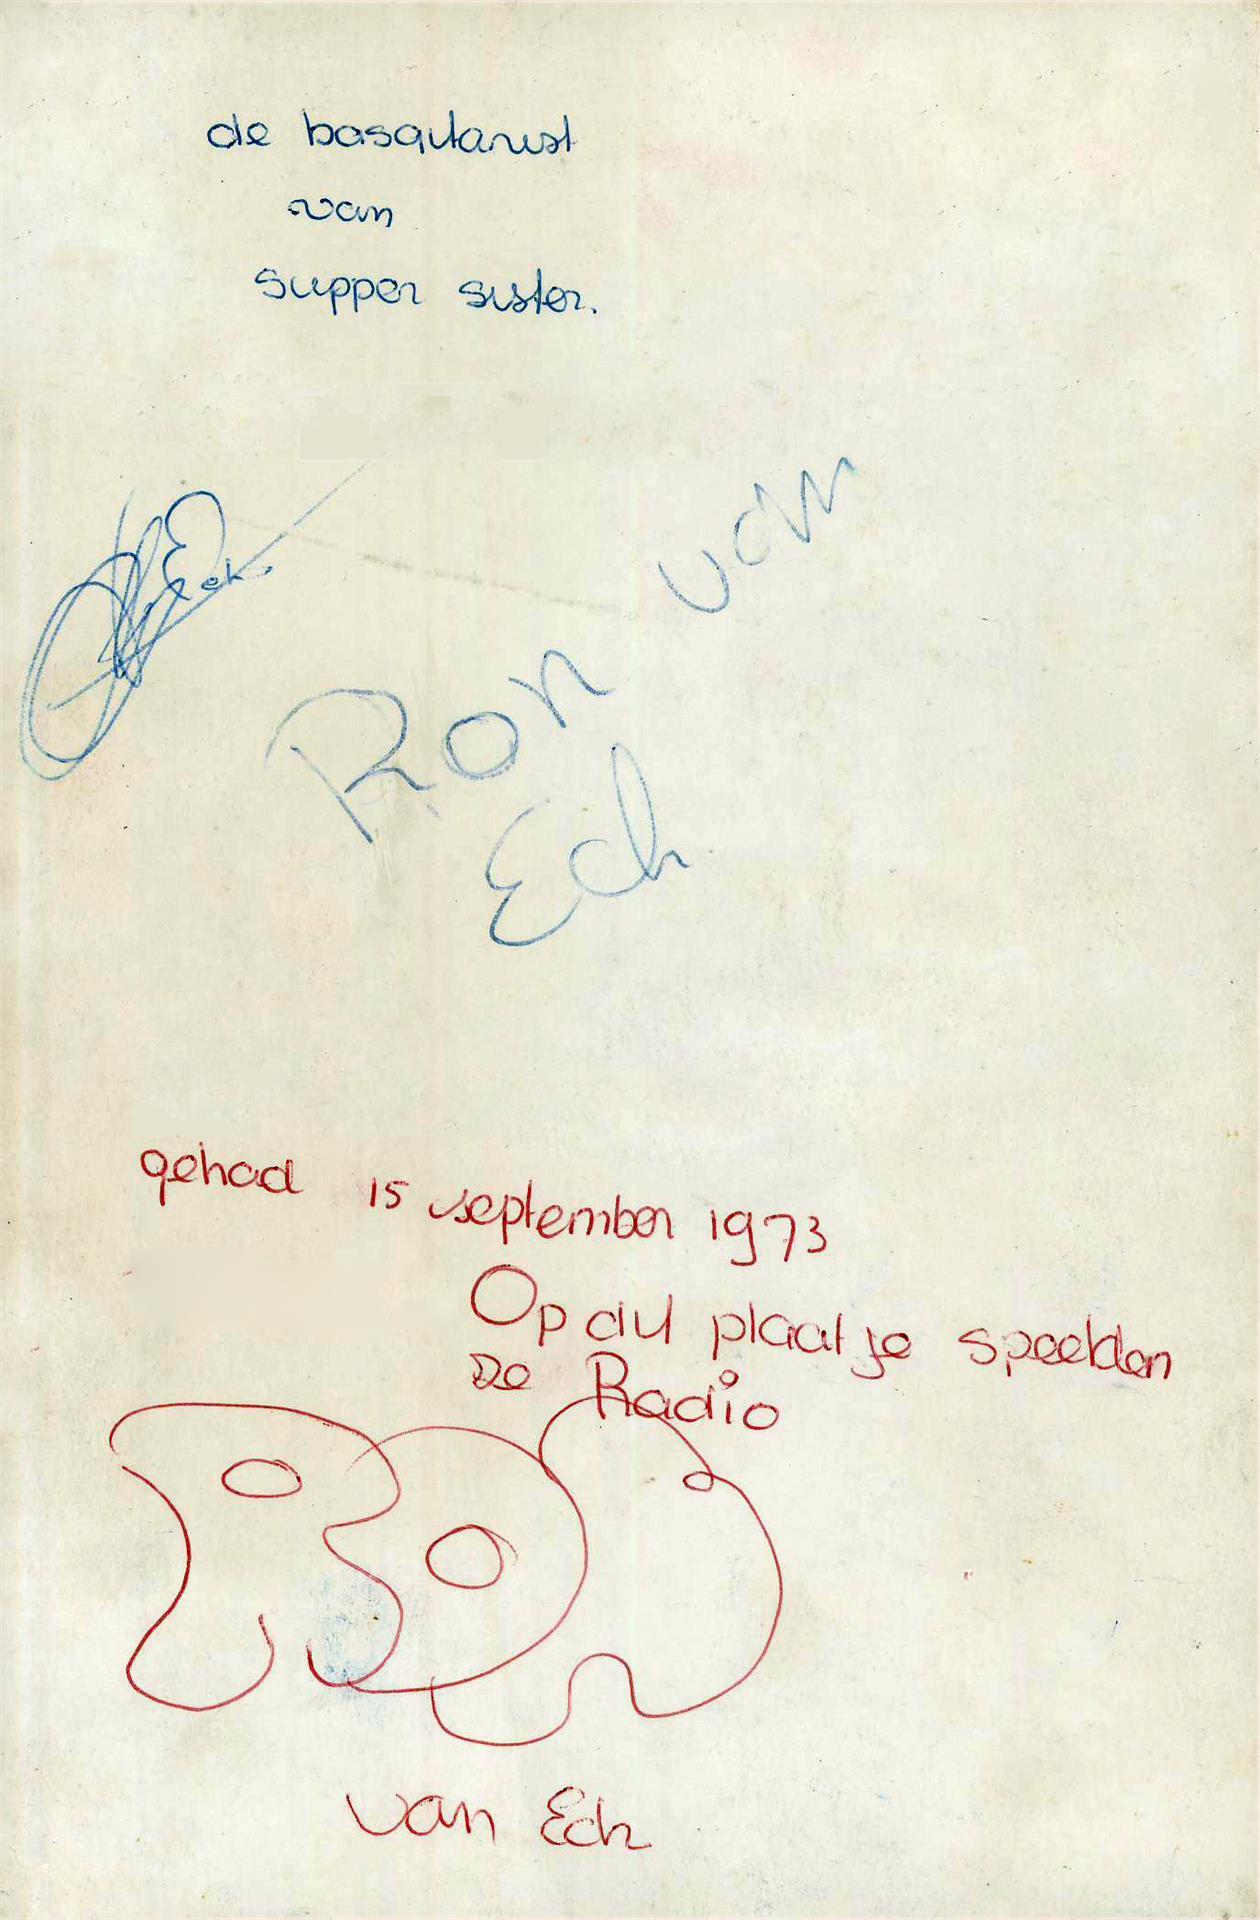 de basgitarist
van
supper sister.
Eck
Ron van
Eck
gehad 15 september 1973
Op dit plaatje speelden
De Radio
Ron
van Eck